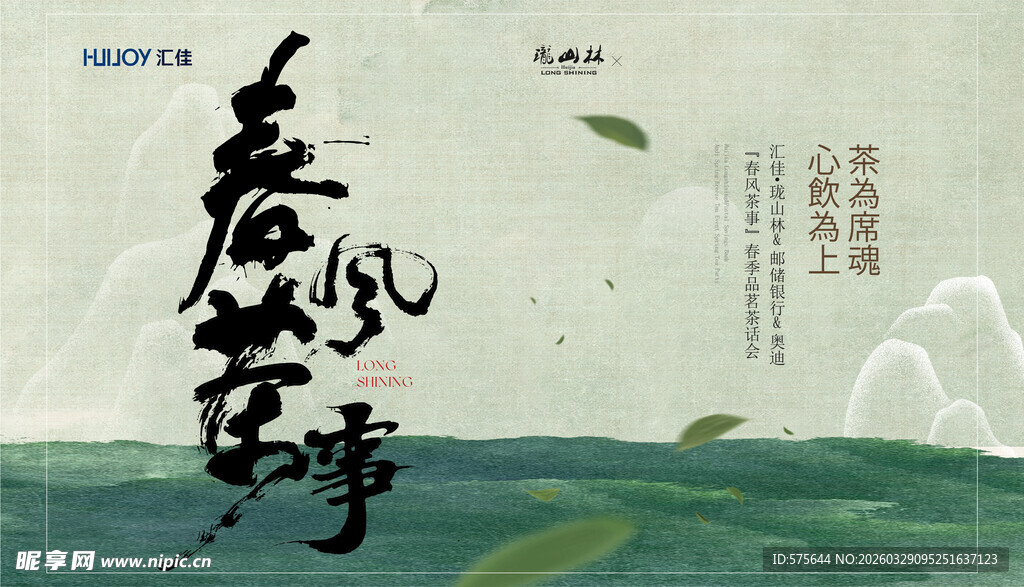 HUIJOY 汇佳
瓏山林
Huijia
LONG SHINING
×
春风茶事
LONG
SHINING
茶為席魂
心飲為上
汇佳•珑山林&邮储银行&奥迪
『春风茶事』春季品茗茶话会
昵享网 www.nipic.cn
ID:575644 NO:20260329095251637123